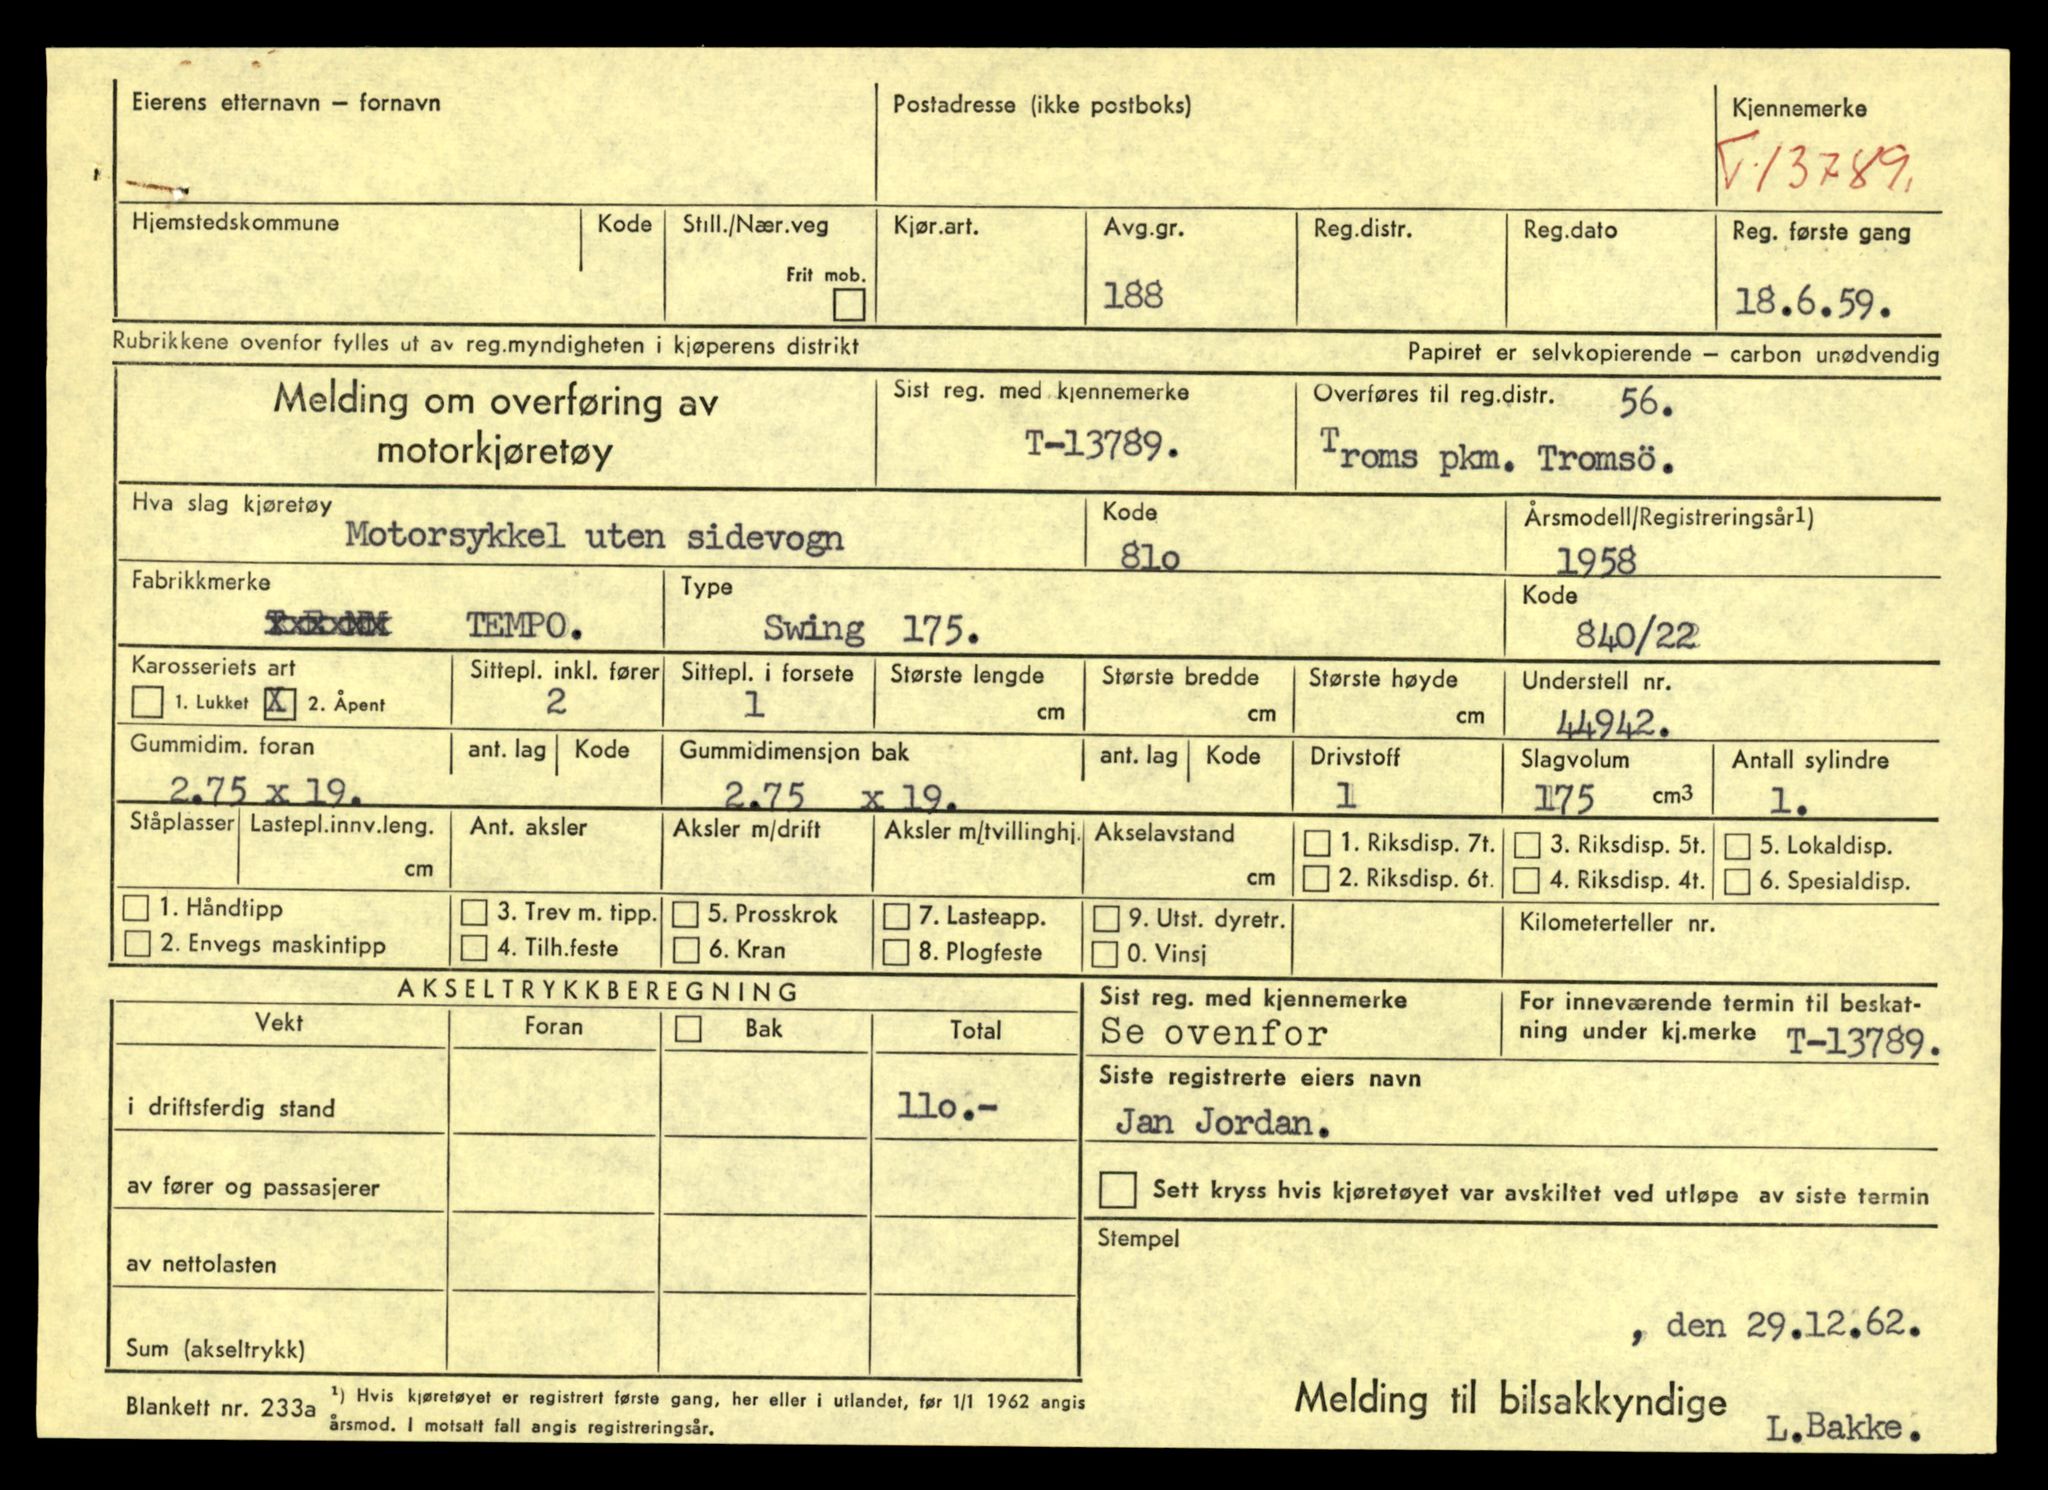 Eierens etternavn – fornavn
Postadresse (ikke postboks)
Kjennemerke
T-13789.
Hjemstedskommune
Kode
Still./Nær.veg
Frit mob.
Kjør.art.
Avg.gr.
188
Reg.distr.
Reg.dato
Reg. første gang
18.6.59.
Rubrikkene ovenfor fylles ut av reg.myndigheten i kjøperens distrikt
Papiret er selvkopierende – carbon unødvendig
Melding om overføring av
motorkjøretøy
Sist reg. med kjennemerke
T-13789.
Overføres til reg.distr. 56.
Troms pkm. Tromsö.
Hva slag kjøretøy
Motorsykkel uten sidevogn
Kode
81o
Årsmodell/Registreringsår1)
1958
Fabrikkmerke
TEMPO.
Type
Swing 175.
Kode
840/22
Karosseriets art
1. Lukket X 2. Åpent
Sittepl. inkl. fører
2
Sittepl. i forsete
1
Største lengde
cm
Største bredde
cm
Største høyde
cm
Understell nr.
44942.
Gummidim. foran
2.75 x 19.
ant. lag
Kode
Gummidimensjon bak
2.75 x 19.
ant. lag
Kode
Drivstoff
1
Slagvolum
175 cm3
Antall sylindre
1.
Ståplasser
Lastepl.innv.leng.
cm
Ant. aksler
Aksler m/drift
Aksler m/tvillinghj.
Akselavstand
cm
1. Riksdisp. 7t.
2. Riksdisp. 6t.
3. Riksdisp. 5t.
4. Riksdisp. 4t.
5. Lokaldisp.
6. Spesialdisp.
1. Håndtipp
2. Envegs maskintipp
3. Trev m. tipp.
4. Tilh.feste
5. Prosskrok
6. Kran
7. Lasteapp.
8. Plogfeste
9. Utst. dyretr.
0. Vinsj
Kilometerteller nr.
AKSELTRYKKBEREGNING
Vekt
Foran
Bak
Total
i driftsferdig stand
11o.-
av fører og passasjerer
av nettolasten
Sum (akseltrykk)
Sist reg. med kjennemerke
Se ovenfor
For inneværende termin til beskat-
ning under kj.merke T-13789.
Siste registrerte eiers navn
Jan Jordan.
Sett kryss hvis kjøretøyet var avskiltet ved utløpe av siste termin
Stempel
, den 29.12.62.
Melding til bilsakkyndige
L.Bakke.
Blankett nr. 233a
1) Hvis kjøretøyet er registrert første gang, her eller i utlandet, før 1/1 1962 angis
årsmod. I motsatt fall angis registreringsår.